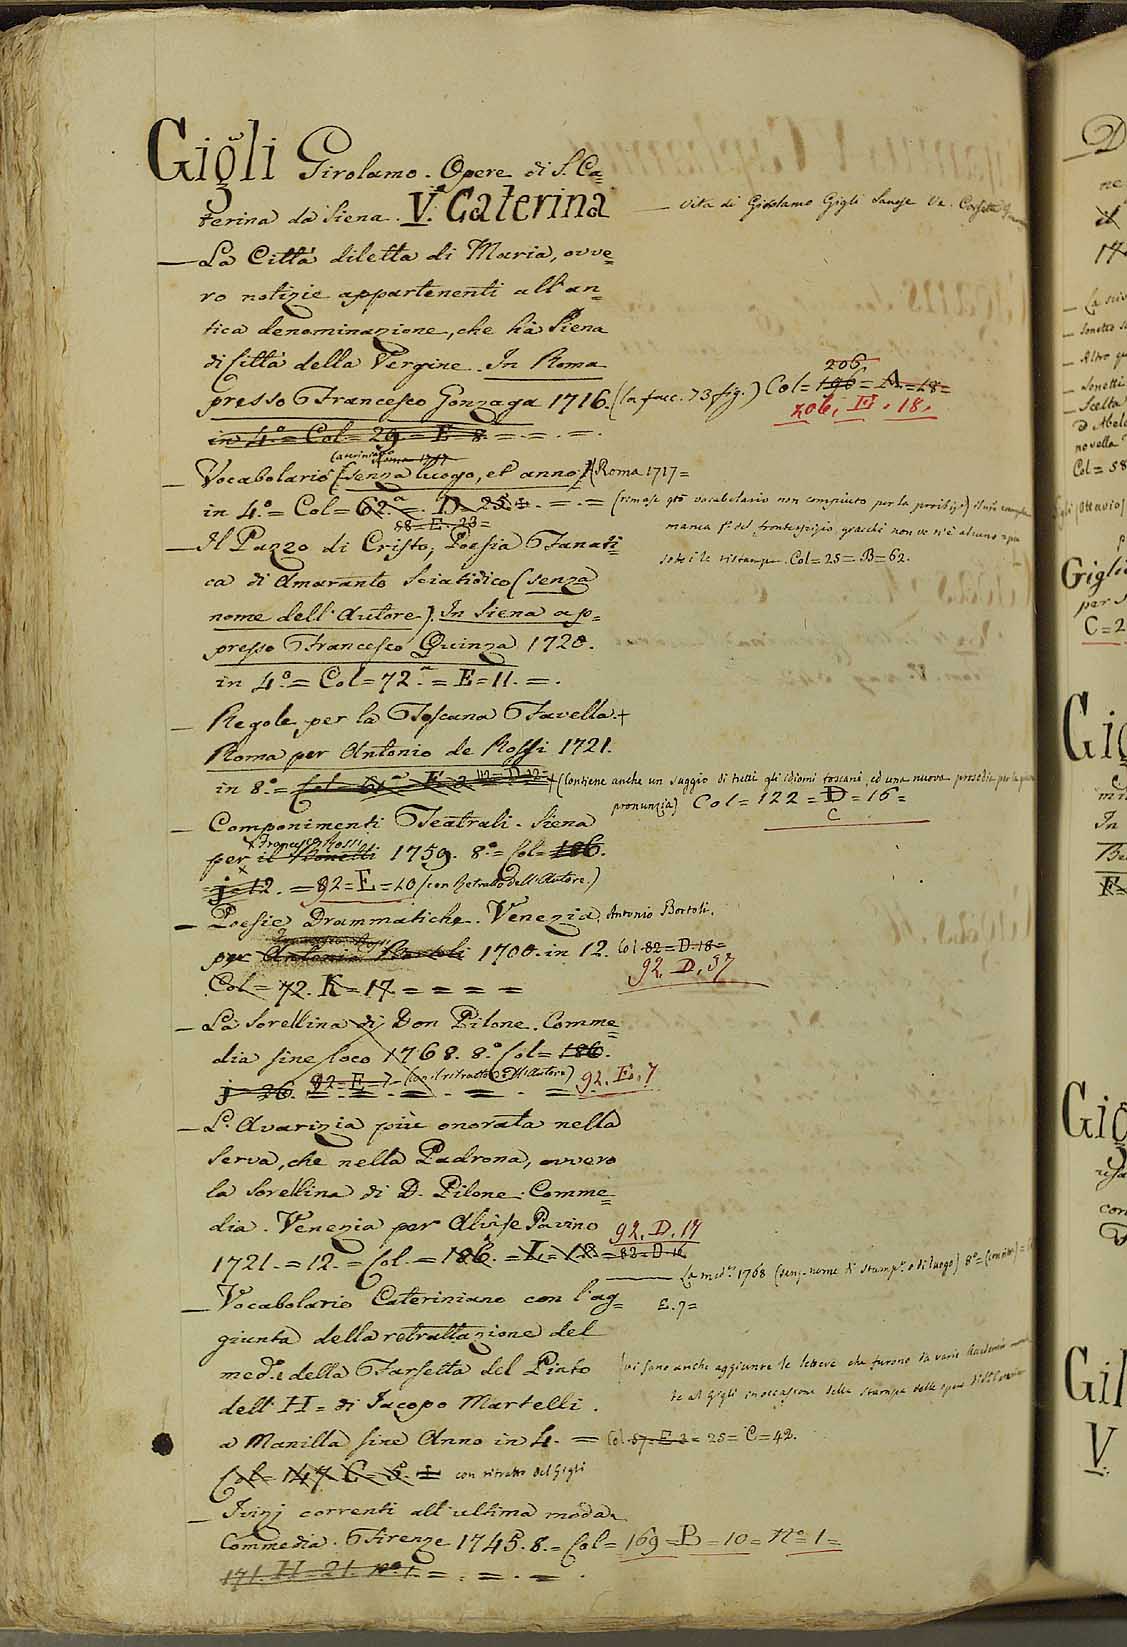 Gigli Girolamo. Opere di S. Ca=
terina da Siena. V.ª Caterina
— Vita di Girolamo Gigli Sanese Ve.
— La Città diletta di Maria, ovve=
ro notizie appartenenti all'an=
tica denominazione, che hà Siena
di Città della Vergine. In Roma
206
presso Francesco Gonzaga 1716. (la facc. 73 fig.) Col= 196 = A = 18 =
206. E. 18.
in 4.º = Col = 29 = E = 8 = = . = .
Cateriniano Roma 1717
— Vocabolario (senza luogo, et anno) (Roma 1717 =
in 4.º = Col = 62.ª = . D = 25 = . = . = (rimase qto vocabolario non compiuto per la proibiz.e) Il suo
58 = E. 23 =
manca f. del frontespizio, giacchè non ve n'è alcuno
sotto le ristampe. Col = 25 = B = 62.
— Il Pazzo di Cristo, Poesia Fanati=
ca di Amaranto Sciatidico (senza
nome dell'Autore). In Siena ap=
presso Francesco Quinza 1720.
in 4.º = Col = 72.ª = E = 11. = .
— Regole per la Toscana Favella. +
Roma per Antonio de Rossi 1721.
in 8.º = Col = 61 = E = 2 112 = D = 12 = + (Contiene anche un saggio di tutti gli idiomi toscani, ed una nuova prosodia per la
pronunzia) Col = 122 = D = 16 =
C
— Componimenti Teatrali. Siena
x Francesco Rossi
per il Bonetti 1759. 8.º = Col = 186.
j = 12. = 92 = E = 10 (con Ritratto dell'Autore.)
— Poesie Drammatiche. Venezia. Antonio Bortoli.
Francesco Rossi
per Antonio Bortoli 1700. in 12. Col 82 = D. 18 =
92. D. 57
Col = 72. K = 17. = = = =
— La Sorellina di Don Pilone. Comme=
dia sine loco 1768. 8.º Col = 186.
j = 26. 92 = E = 7 (con il ritratto dell'Autore) 92. E. 7
— L'Avarizia più onorata nella
Serva, che nella Padrona, ovvero
la Sorellina di D. Pilone. Comme=
dia. Venezia per Alvise Pavino 92. D. 17
1721. = 12. = Col. = 186. = L = 12 = 82 = D = 12
— La med.ª 1768 (senza nome di stamp.e e di luogo) 8º =
E. 7 =
— Vocabolario Cateriniano con l'ag=
giunta della retrattazione del
med.º e della Farsetta del Piato (vi sono anche aggiunte le lettere che furono da varie Accademie
dell'H = di Jacopo Martelli. te al Gigli in occasione della stampa delle opere
a Manilla sine Anno in 4. = Col 57 = E 3 = 25 = C = 42.
Col = 147 C = 5. = con ritratto del Gigli
— I vizj correnti all'ultima moda.
Commedia. Firenze 1745. 8. = Col = 169 = B = 10 = N.º 1 =
171. H = 21. N.º 1. = . = . = .
La
Sonetto
Altro
Sonetti
Scelta
D'Abel
novella
Col = 58
Gigli (Ottavio)
Gigli
per
C = 2
Gig
In
Gig
con
Gil
V.